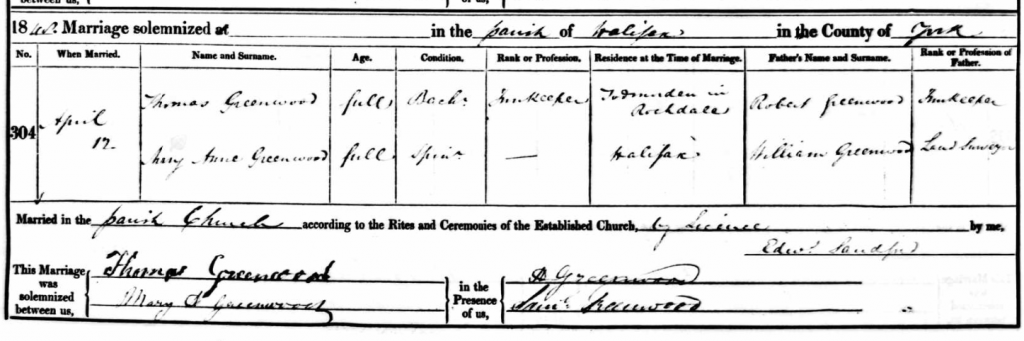 1842. Marriage solemnized at in the parish of Halifax in the County of York
No. When Married. Name and Surname. Age. Condition. Rank or Profession. Residence at the Time of Marriage. Father's Name and Surname. Rank or Profession of Father.
304 April 12. Thomas Greenwood full Bachr Innkeeper Todmorden in Rochdale Robert Greenwood Innkeeper
Mary Anne Greenwood full Spinr — Halifax William Greenwood Land Surveyor
Married in the parish Church according to the Rites and Ceremonies of the Established Church, by Licence by me,
Edwd Sandford
This Marriage was solemnized between us, Thomas Greenwood in the Presence of us, Greenwood
Mary A Greenwood Saml Greenwood